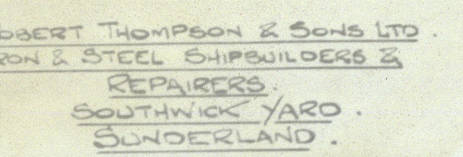 OBERT THOMPSON & SONS LTD.
RON & STEEL SHIPBUILDERS &
REPAIRERS.
SOUTHWICK YARD.
SUNDERLAND.